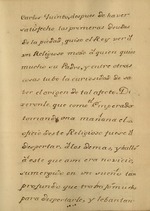 Carlos Quinto, despues de haver
satisfecho las primeras deudas
de la piedad, quiso el Rey ver á
un Religioso mozo á quien quiso
mucho su Padre, y entre otras
cosas tubo la curiosidad de sa-
ber el origen de tal afecto. Di-
xeronle que como el Emperador
tomando una mañana el
oficio de este Religioso fuese á
despertar á los demas, y halló
á este que aun era novicio,
sumergido en un sueño tan
profundo que trabajó mucho
para despertarle, y lebantan-